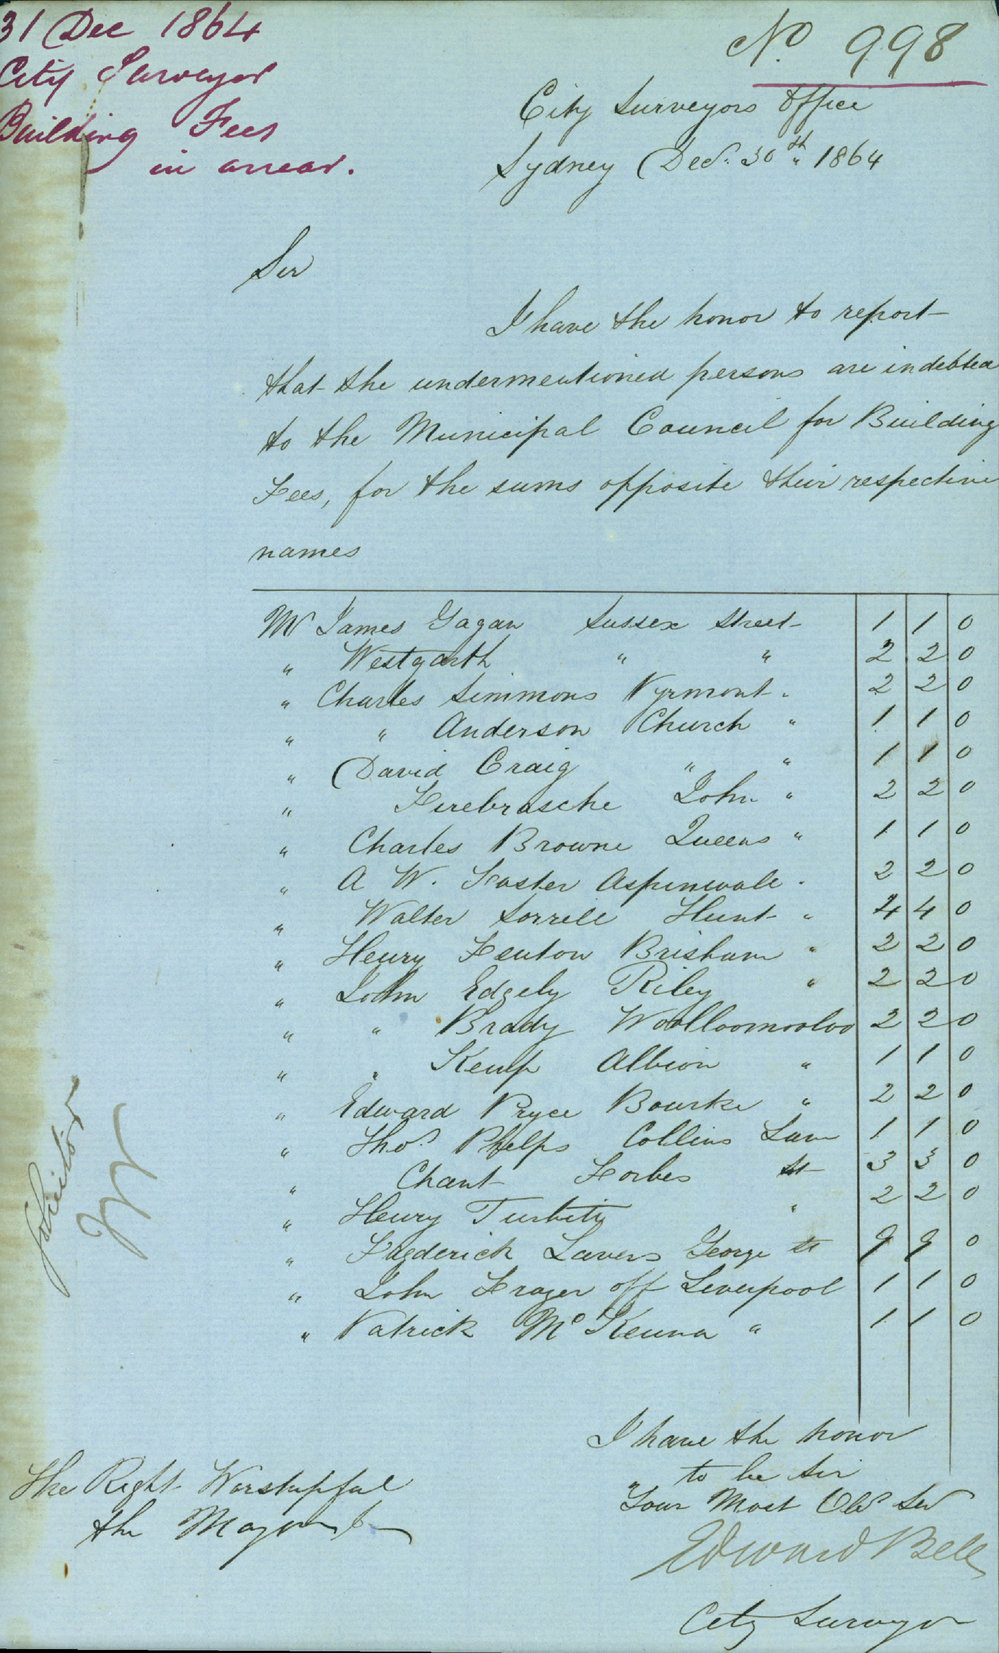 31 Dec 1864
City Surveyor
Building Fees
in arrear.
No 998
City Surveyors Office
Sydney Dec. 30th 1864
Sir
I have the honor to report
that the undermentioned persons are indebted
to the Municipal Council for Building
Fees, for the sums opposite their respective
names
Mr James Gagan Sussex Street 1 1 0
" Westgarth " " 2 2 0
" Charles Simmons Pyrmont " 2 2 0
" " Anderson Church " 1 1 0
" David Craig " " 1 1 0
" Firebrasche John " 2 2 0
" Charles Browne Queens " 1 1 0
" A W. Foster Aspinwall . 2 2 0
" Walter Sorrell Hunt " 4 4 0
" Henry Fenton Brisbane " 2 2 0
" John Edgely Riley " 2 2 0
" " Brady Woolloomooloo 2 2 0
" " Kemp Albion " 1 1 0
" Edward Pryce Bourke " 2 2 0
" Thos. Phelps Collins Lane 1 1 0
" Chant Forbes St 3 3 0
" Henry " 2 2 0
" Frederick Lavers George St 9 9 0
" John Frazer off Liverpool 1 1 0
" Patrick McKenna " 1 1 0
Solicitor
I have the honor
to be Sir
Your Most Obt Ser
Edward Bell
City Surveyor
The Right Worshipful
the Mayor